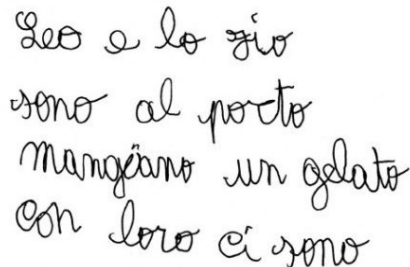 Leo e lo zio
sono al porto
mangiano un gelato
con loro ci sono